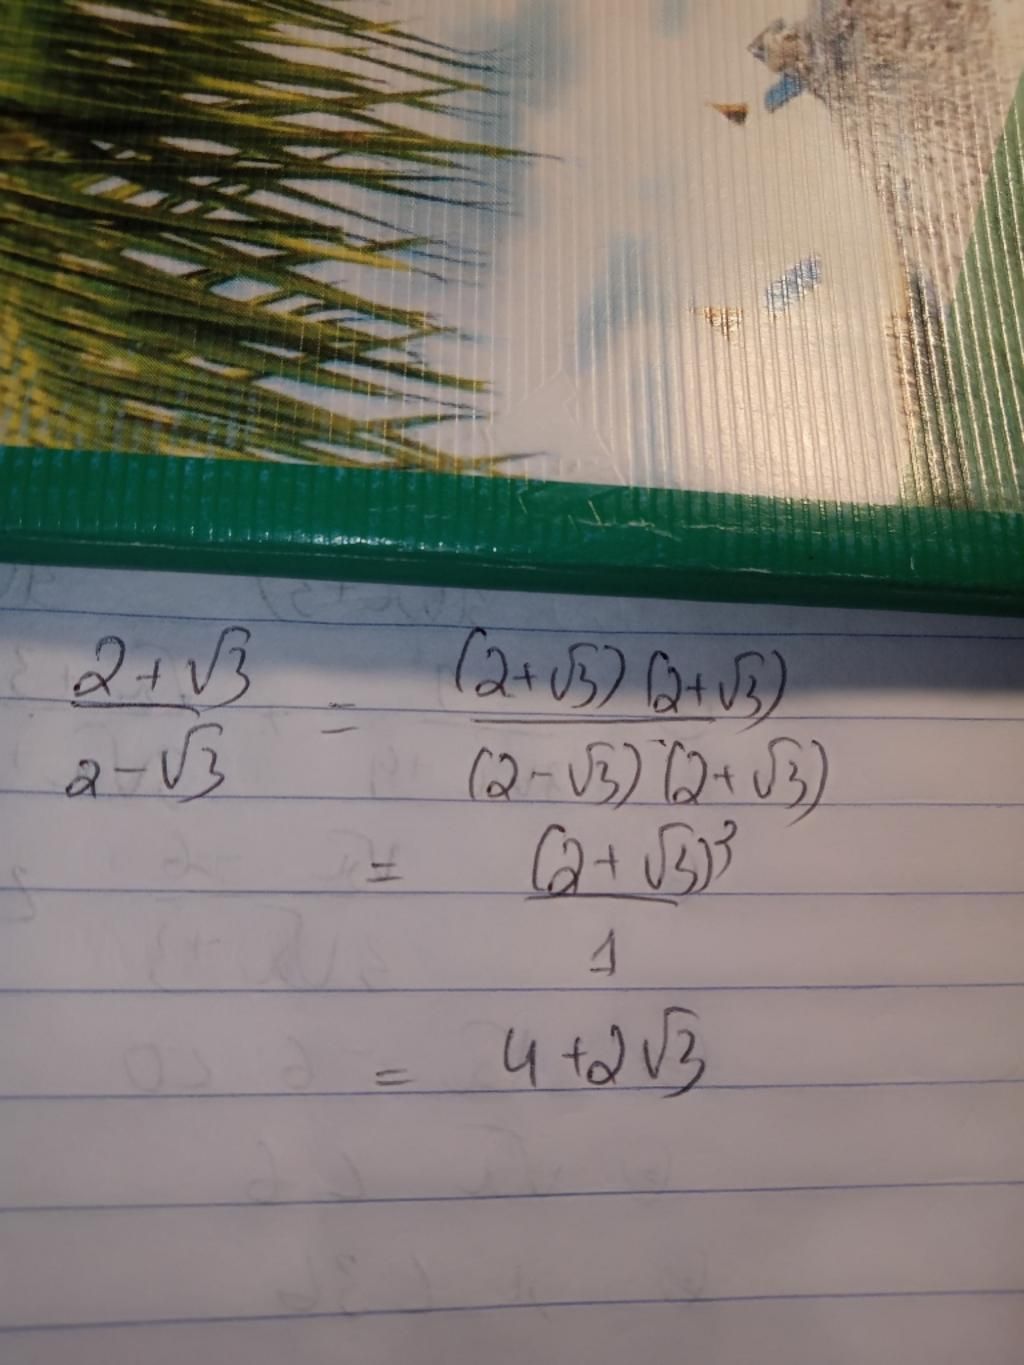 (2+√3)/(2-√3) = ((2+√3)(2+√3))/((2-√3)(2+√3))
= (2+√3)³/1
= 4+2√3